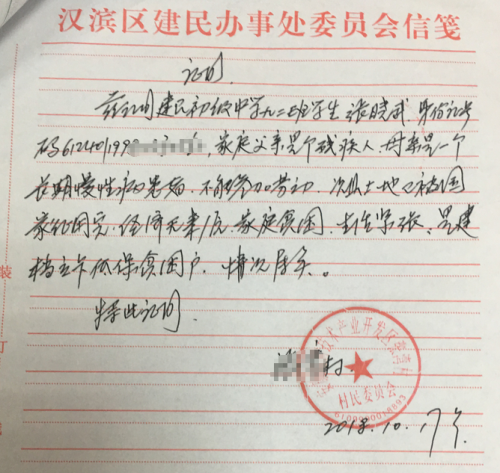 汉滨区建民办事处委员会信笺
证明
兹证明建民初级中学九二班学生张晓武,身份证号
码612401199,家庭父亲是个残疾人,母亲是一个
长期慢性病患者,不能参加劳动,土地已被国
家征用完,经济无来源,家庭贫困,生活紧张,是建
档立卡低保贫困户,情况属实。
特此证明
村
技术产业开发区
村民委员会
2018.10.
装
订